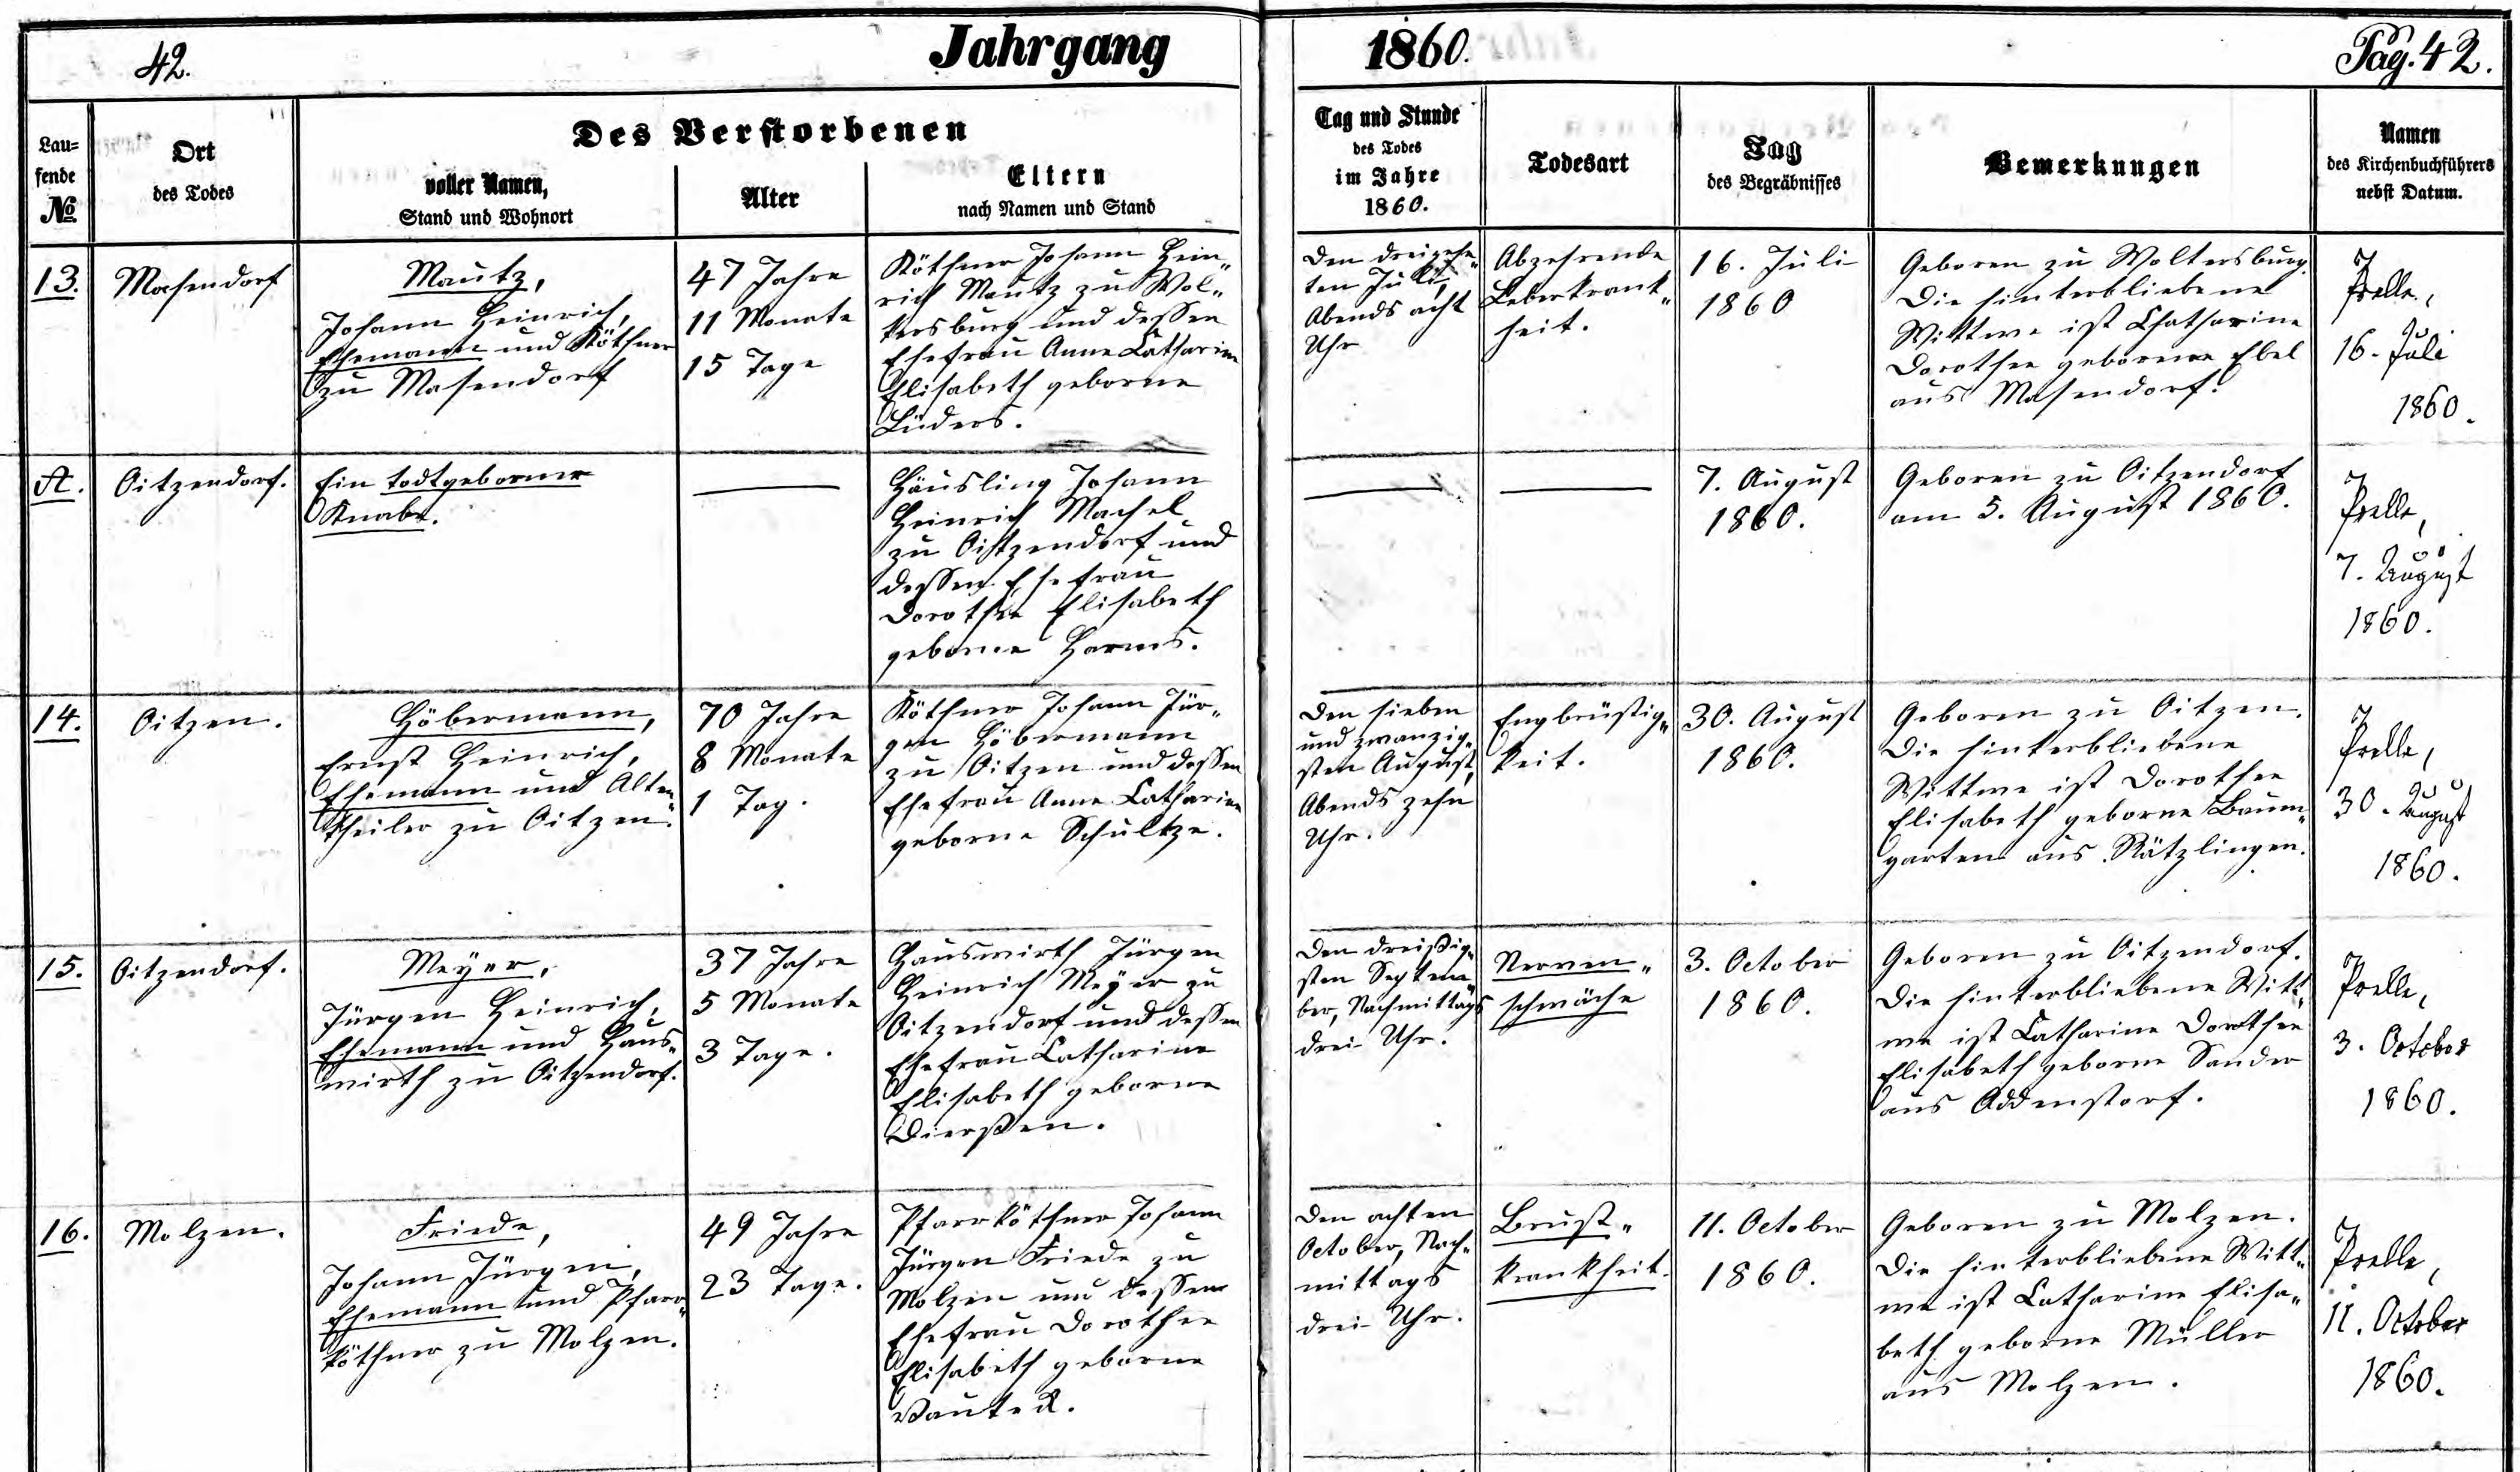 42.
Jahrgang 1860.
Pag. 42.
Lau=
fende
No
Ort
des Todes
Des Verstorbenen
voller Namen,
Stand und Wohnort
Alter
Eltern
nach Namen und Stand
Tag und Stunde
des Todes
im Jahre
1860.
Todesart
Tag
des Begräbnisses
Bemerkungen
Namen
des Kirchenbuchführers
nebst Datum.
13.
Masendorf
Mautz,
Johann Heinrich,
Ehemann und Köthner
zu Masendorf
47 Jahre
11 Monate
15 Tage
Köthner Johann Hein„
rich Mautz zu Wol„
tersburg und dessen
Ehefrau Anne Catharine
Elisabeth geborne
Lüders.
Den dreizehn„
ten Juli,
Abends acht
Uhr
Abzehrende
Leberkrank„
heit.
16. Juli
1860
Geboren zu Woltersburg.
Die hinterbliebene
Wittwe ist Chatharine
Dorothee geborne Ebel
aus Masendorf.
Prelle,
16. Juli
1860.
A.
Oitzendorf.
Ein todtgeborner
Knabe.
Häusling Johann
Heinrich Machel
zu Oitzendorf und
dessen Ehefrau
Dorothee Elisabeth
geborne Harms.
7. August
1860.
Geboren zu Oitzendorf
am 5. August 1860.
Prelle,
7. August
1860.
14.
Oitzen.
Höbermann,
Ernst Heinrich,
Ehemann und Alten„
theiler zu Oitzen.
70 Jahre
8 Monate
1 Tag.
Köthner Johann Jür„
gen Höbermann
zu Oitzen und dessen
Ehefrau Anne Catharine
geborne Schultze.
Den sieben
und zwanzig„
sten August,
Abends zehn
Uhr.
Engbrüstig„
keit.
30. August
1860.
Geboren zu Oitzen.
Die hinterbliebene
Wittwe ist Dorothee
Elisabeth geborne Baum„
garten aus Rätzlingen.
Prelle,
30. August
1860.
15.
Oitzendorf.
Meyer,
Jürgen Heinrich,
Ehemann und Haus„
wirth zu Oitzendorf.
37 Jahre
5 Monate
3 Tage.
Hauswirth Jürgen
Heinrich Meyer zu
Oitzendorf und dessen
Ehefrau Catharine
Elisabeth geborne
Dierßen.
Den dreißig„
sten Septem„
ber, Nachmittags
drei Uhr.
Nerven„
schwäche
3. October
1860.
Geboren zu Oitzendorf.
Die hinterbliebene Witt„
we ist Catharine Dorothee
Elisabeth geborne Sander
aus Addenstorf.
Prelle,
3. October
1860.
16.
Molzen.
Friede,
Johann Jürgen,
Ehemann und Pfarr„
köthner zu Molzen.
49 Jahre
23 Tage.
Pfarrköthner Johann
Jürgen Friede zu
Molzen und dessen
Ehefrau Dorothee
Elisabeth geborne
Den achten
October, Nach„
mittags
drei Uhr.
Brust„
krankheit.
11. October
1860.
Geboren zu Molzen.
Die hinterbliebene Witt„
we ist Catharine Elisa„
beth geborne Müller
aus Molzen.
Prelle,
11. October
1860.